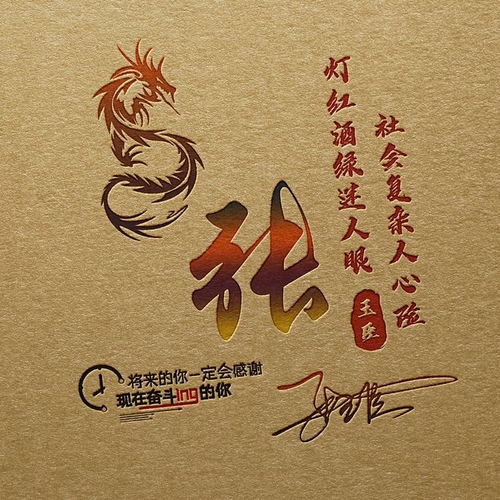 灯红酒绿迷人眼
社会复杂人心险
张
玉臣
将来的你一定会感谢
现在奋斗ing的你